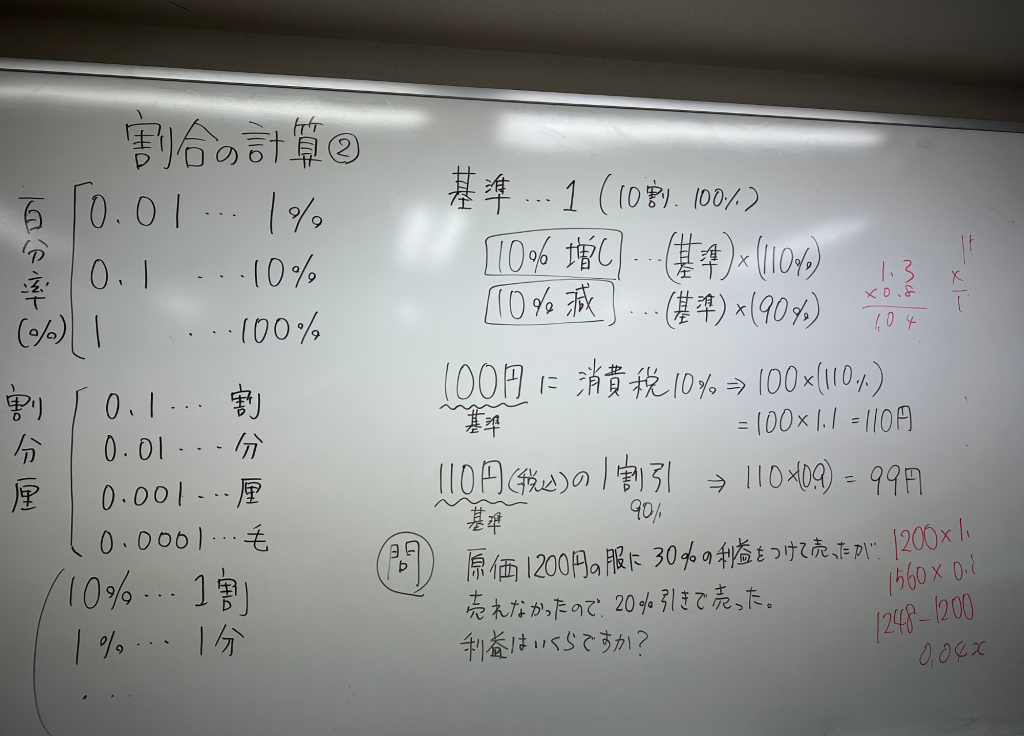 割合の計算②
百分率(%)
0.01 … 1%
0.1 … 10%
1 … 100%
割分厘
0.1 … 割
0.01 … 分
0.001 … 厘
0.0001 … 毛
10% … 1割
1% … 1分
. . .
基準 … 1 (10割、100%)
10% 増し … (基準)×(110%)
10% 減 … (基準)×(90%)
100円に 消費税10% ⇒ 100×(110%)
基準
= 100×1.1 = 110円
110円(税込)の 1割引 ⇒ 110×(0.9) = 99円
基準
90%
問
原価1200円の服に 30%の利益をつけて売ったが、
売れなかったので、20%引きで売った。
利益はいくらですか?
1.3
×0.8
1.04
×
1.
1200×1.
1560×0.
1248-1200
0.04x